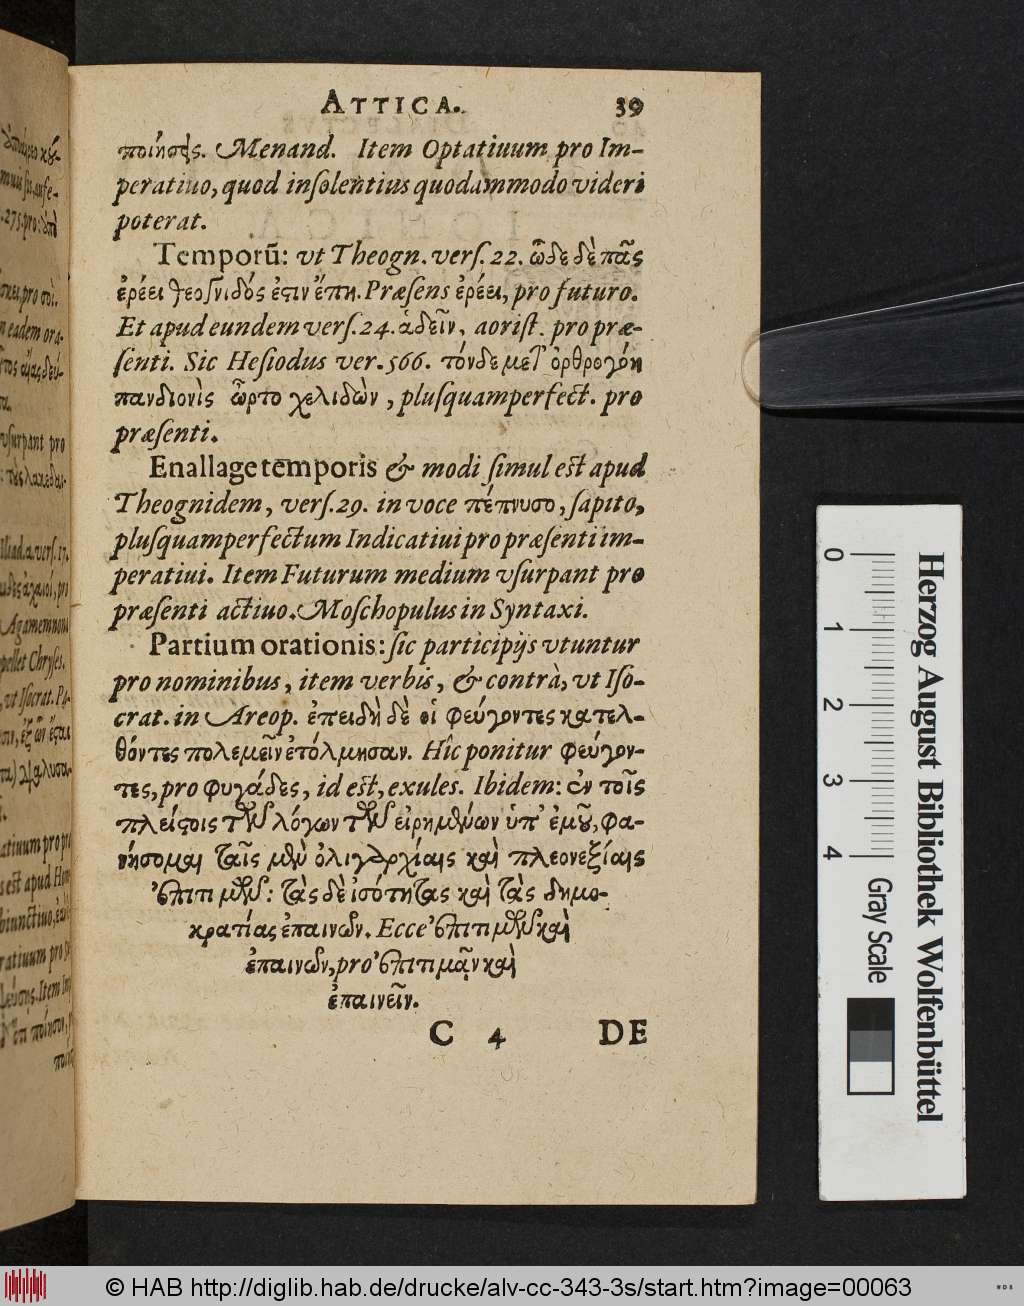 ATTICA. 39
ποιήσῃς. Menand. Item Optatiuum pro Im-
peratiuo, quod inſolentius quodammodo videri
poterat.
Temporū: vt Theogn. verſ. 22. ὧδε δὲ πᾶς
ἐρέει θεόγνιδός ἐςιν ἔπη. Præſens ἐρέει, pro futuro.
Et apud eundem verſ. 24. ἁδεῖν, aoriſt. pro præ-
ſenti. Sic Heſiodus ver. 566. τόνδε μετ' ὀρθρογόη
πανδιονὶς ὦρτο χελιδὼν, pluſquamperfect. pro
præſenti.
Enallage temporis & modi ſimul eſt apud
Theognidem, verſ. 29. in voce πέπνυσο, ſapito,
pluſquamperfectum Indicatiui pro præſenti im-
peratiui. Item Futurum medium vſurpant pro
præſenti actiuo. Moſchopulus in Syntaxi.
Partium orationis: ſic participijs vtuntur
pro nominibus, item verbis, & contrà, vt Iſo-
crat. in Areop. ἐπειδὴ δὲ οἱ φεύγοντες κατελ-
θόντες πολεμεῖν ἐτόλμησαν. Hîc ponitur φεύγον-
τες, pro φυγάδες, id eſt, exules. Ibidem: ἐν τοῖς
πλείςοις τῶν λόγων τῶν εἰρημένων ὑπ' ἐμοῦ, φα-
νήσομαι ταῖς μὲν ὀλιγαρχίαις καὶ πλεονεξίαις
ἐπιτιμῶν: τὰς δὲ ἰσότητας καὶ τὰς δημο-
κρατίας ἐπαινῶν. Ecce ἐπιτιμῶν καὶ
ἐπαινῶν, pro ἐπιτιμᾷν καὶ
ἐπαινεῖν.
C 4 DE
0 1 2 3 4
Herzog August Bibliothek Wolfenbüttel
Gray Scale
© HAB http://diglib.hab.de/drucke/alv-cc-343-3s/start.htm?image=00063